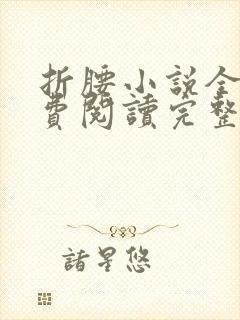 折腰小說全
費閱讀完整
諸星悠